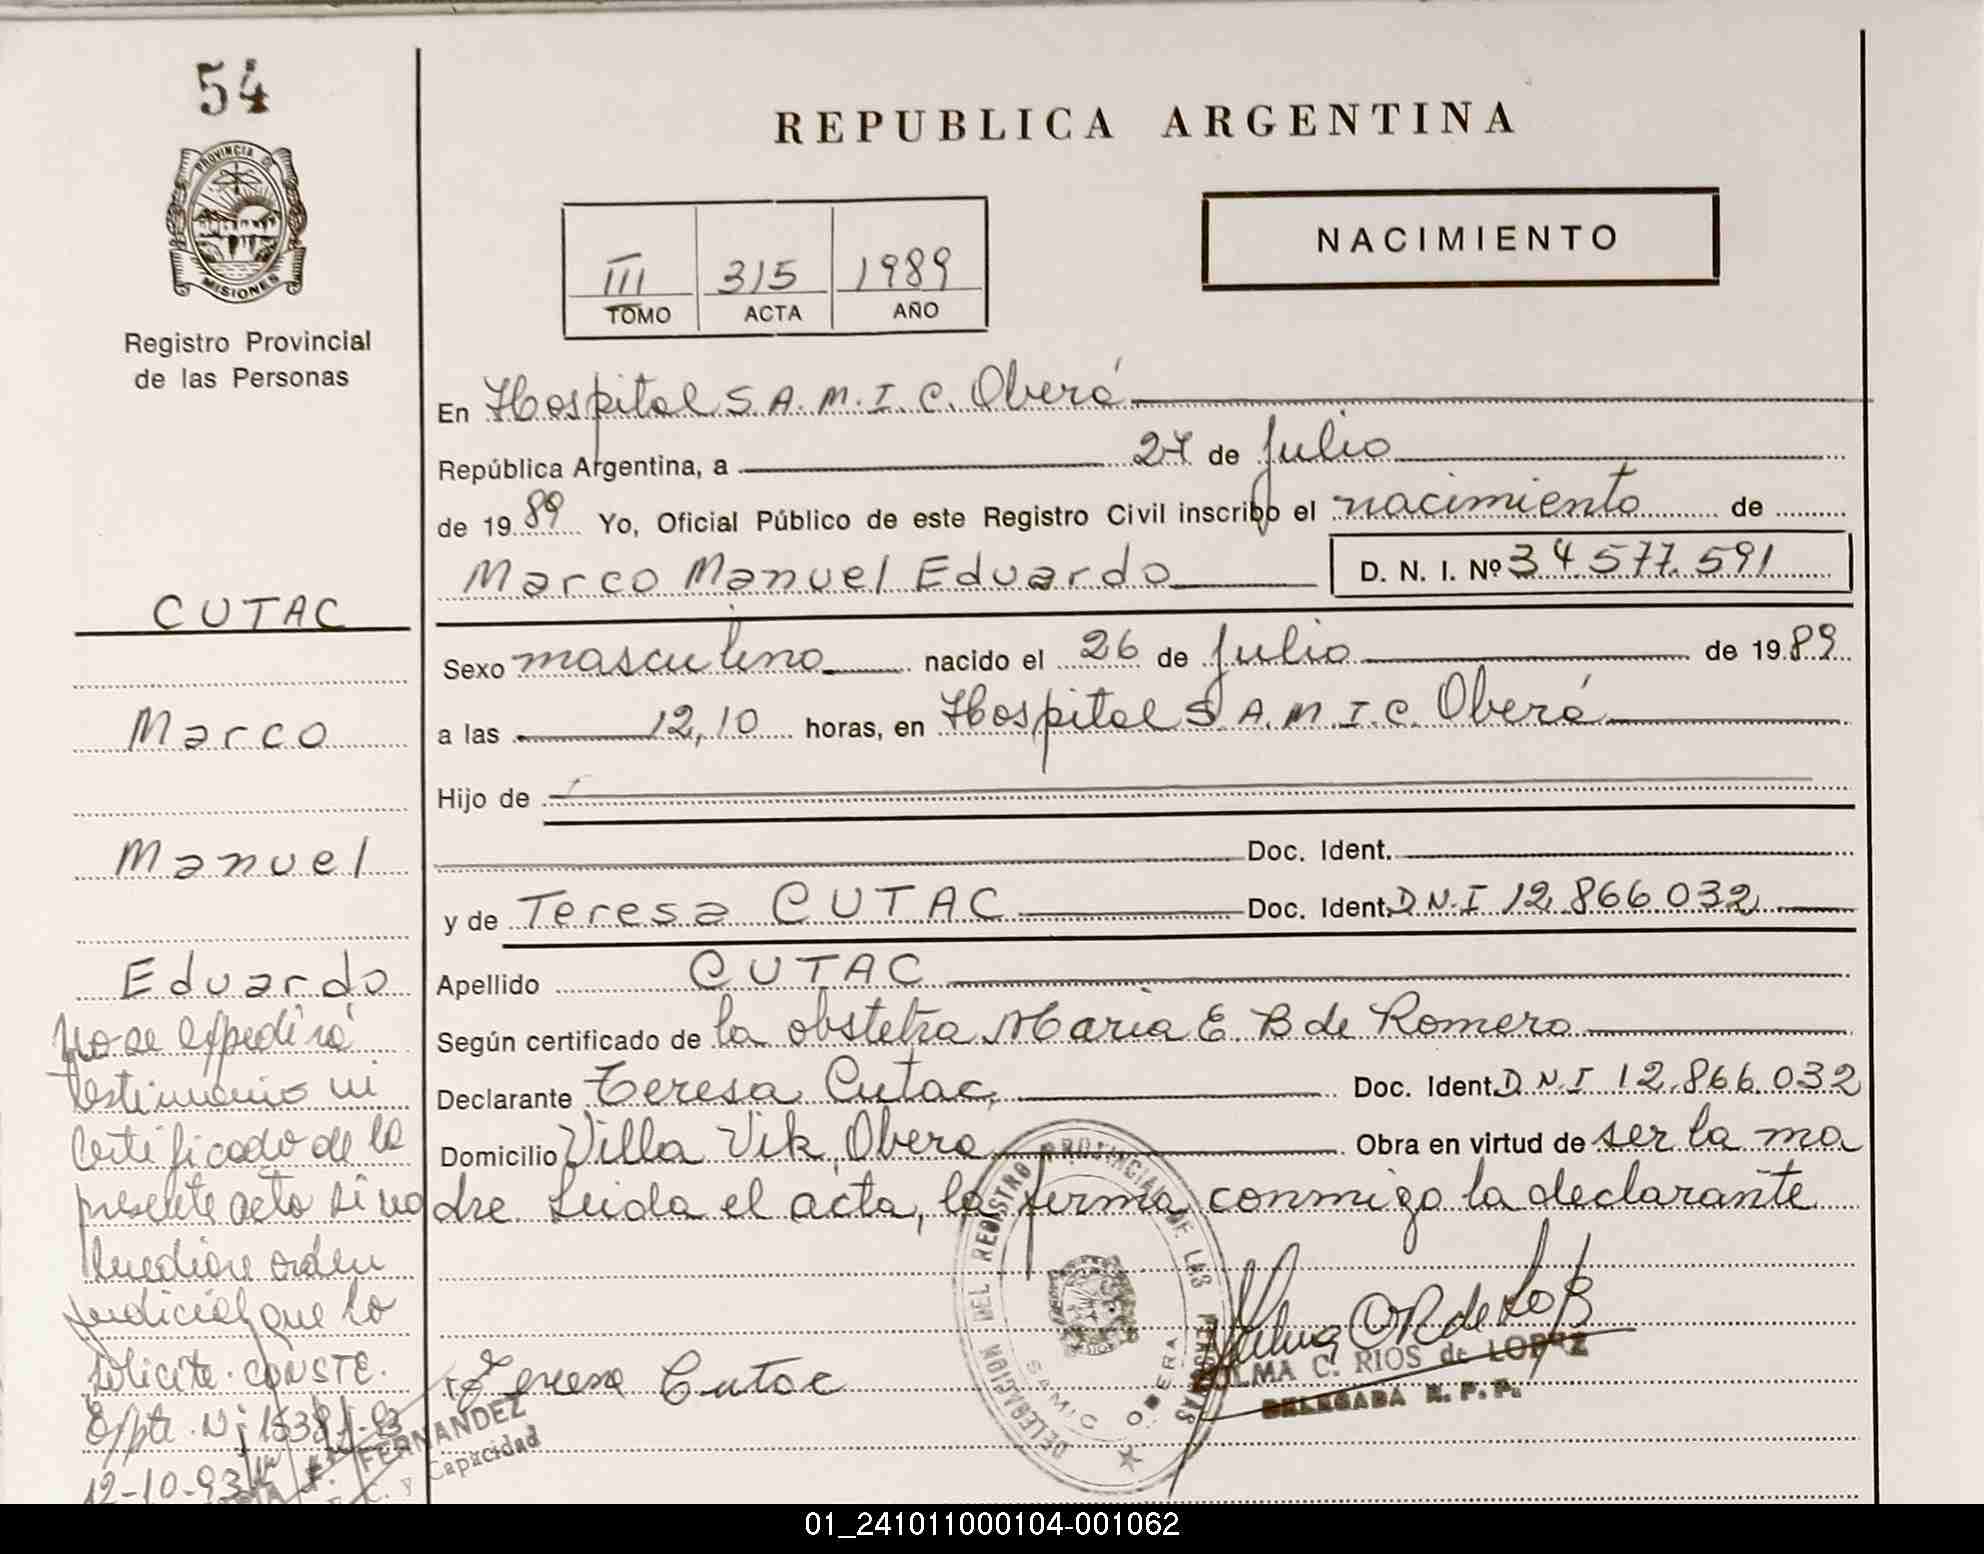 54
REPUBLICA ARGENTINA
PROVINCIA D MISIONES
NACIMIENTO
III 315 1989
TOMO ACTA AÑO
Registro Provincial
de las Personas
En Hospital S.A.M.I.C. Oberá
República Argentina, a 27 de Julio
de 1989 Yo, Oficial Público de este Registro Civil inscribo el nacimiento de
Marco Manuel Eduardo D. N. I. Nº 34.577.591
CUTAC
Marco
Manuel
Eduardo
Sexo masculino nacido el 26 de Julio de 1989
a las 12,10 horas, en Hospital S.A.M.I.C. Oberá
Hijo de
Doc. Ident.
y de Teresa CUTAC Doc. Ident. D.N.I 12.866.032
Apellido CUTAC
Según certificado de la obstetra Maria E. B de Romero
Declarante Teresa Cutac, Doc. Ident. D.N.I 12.866.032
Domicilio Villa Vik, Obera Obra en virtud de ser la ma
dre. Leida el acta, la firma conmigo la declarante
No se expedirá
testimonio ni
certificado de la
presente acta si no
mediare orden
judicial que lo
solicite. CONSTE.
Expte. Nº
12-10-93
FERNANDEZ
C. y Capacidad
Teresa Cutac
DELEGACION DEL REGISTRO PROVINCIAL DE LAS PERSONAS
SAMIC OBERA
C. RIOS de LOPEZ
DELEGADA R. P. P.
01_241011000104-001062